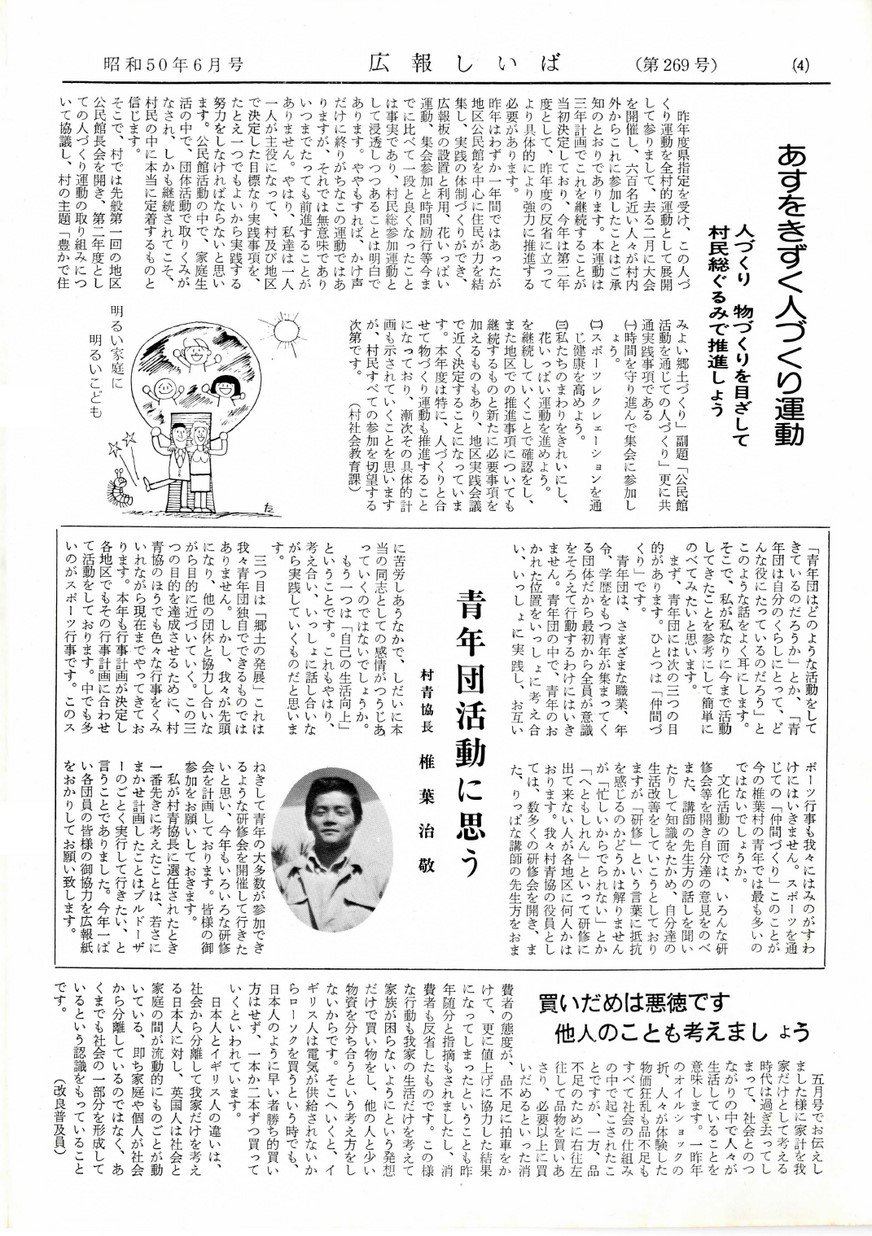 昭和50年6月号
広報しいば
(第269号)
(4)
あすをきずく人づくり運動
人づくり　物づくりを目ざして
村民総ぐるみで推進しよう
昨年度県指定を受け、この人づ
くり運動を全村的運動として展開
して参りまして、去る二月に大会
を開催し、六百名近い人々が村内
外からこれに参加したことはご承
知のとおりであります。本運動は
三年計画でこれを継続することが
当初決定しており、今年は第二年
度として、昨年度の反省に立って
より具体的により強力に推進する
必要があります。
昨年はわずか一年間ではあったが
地区公民館を中心に住民が力を結
集し、実践の体制づくりができ、
広報板の設置と利用、花いっぱい
運動、集会参加と時間励行等今ま
でに比べて一段と良くなったこと
は事実であり、村民総参加運動と
して浸透しつつあることは明白で
あります。ややもすれば、かけ声
だけに終りがちなこの運動ではあ
りますが、それでは無意味であり
いつまでたっても前進することが
ありません。やはり、私達は一人
一人が主役になって、村及び地区
で決定した目標なり実践事項を、
たとえ一つでもよいから実践する
努力をしなければならないと思い
ます。公民館活動の中で、家庭生
活の中で、団体活動で取りくみが
なされ、しかも継続されてこそ、
村民の中に本当に定着するものと
信じます。
そこで、村では先般第一回の地区
公民館長会を開き、第二年度とし
ての人づくり運動の取り組みにつ
いて協議し、村の主題「豊かで住
みよい郷土づくり」副題「公民館
活動を通じての人づくり」更に共
通実践事項である
㈠時間を守り進んで集会に参加し
ょう。
㈡スポーツレクレェーションを通
じ健康を高めよう。
㈢私たちのまわりをきれいにし、
花いっぱい運動を進めよう。
を継続していくことで確認をし、
また地区での推進事項についても
継続するものと新たに必要事項を
加えるものもあり、地区実践会議
で近く決定することになっていま
す。本年度は特に、人づくりと合
せて物づくり運動も推進すること
になっており、漸次その具体的計
画も示されていくことを思います
が、村民すべての参加を切望する
次第です。　（村社会教育課）
明るい家庭に
明るいこども
た
青年団活動に思う
村青協長　椎葉治敬
「青年団はどのような活動をして
きているのだろうか」とか、「青
年団は自分のくらしにとって、ど
んな役にたっているのだろう」と
このような話をよく耳にします。
そこで、私が私なりに今まで活動
してきたことを参考にして簡単に
のべてみたいと思います。
まず、青年団には次の三つの目
的があります。ひとつは「仲間づ
くり」です。
青年団は、さまざまな職業、年
令、学歴をもつ青年が集まってく
る団体だから最初から全員が意識
をそろえて行動するわけにはいき
ません。青年団の中で、青年のお
かれた位置をいっしょに考え合
い、いっしょに実践し、お互い
に苦労しあうなかで、しだいに本
当の同志としての感情がつうじあ
っていくのではないでしょうか。
もう一つは「自己の生活向上」
ということです。これもやはり、
考え合い、いっしょに話し合いな
がら実践していくものだと思いま
す。
三つ目は「郷土の発展」これは
我々青年団独自でできるものでは
ありません。しかし、我々が先頭
になり、他の団体と協力し合いな
がら目的に近づいていく。この三
つの目的を達成させるために、村
青協のほうでも色々な行事をくみ
いれながら現在までやってきてお
ります。本年も行事計画が決定し
各地区でもその行事計画に合わせ
て活動をしております。中でも多
いのがスポーツ行事です。このス
ポーツ行事も我々にはみのがすわ
けにはいきません。スポーツを通
じての「仲間づくり」このことが
今の椎葉村の青年では最も多いの
ではないでしょうか。
文化活動の面では、いろんな研
修会等を開き自分達の意見をのべ
また、講師の先生方の話しを聞い
たりして知識をたかめ、自分達の
生活改善をしていこうとしており
ますが「研修」という言葉に抵抗
を感じるのかどうかは解りません
が「忙しいからでられない」とか
「へともしれん」といって研修に
出て来ない人が各地区に何人かは
おります。我々村青協の役員とし
ては、数多くの研修会を開き、ま
た、りっぱな講師の先生方をおま
ねきして青年の大多数が参加でき
るような研修会を開催して行きた
いと思い、今年もいろいろな研修
会を計画しております。皆様の御
参加をお願いしておきます。
私が村青協長に選任されたとき
一番先きに考えたことは、若さに
まかせ計画したことはブルドーザ
ーのごとく実行して行きたい、と
言うことでありました。今年一ぱ
い各団員の皆様の御協力を広報紙
をおかりしてお願い致します。
買いだめは悪徳です
他人のことも考えましょう
五月号でお伝えし
ました様に家計を我
家だけとして考える
時代は過ぎ去ってし
まって、社会とのつ
ながりの中で人々が
生活していることを
意味します。一昨年
のオイルショックの
折、人々が体験した
物価狂乱も品不足も
すべて社会の仕組み
の中で起こされたこ
とですが、一方、品
不足のために右往左
往して品物を買いあ
さり、必要以上に買
いだめるといった消
費者の態度が、品不足に拍車をか
けて、更に値上げに協力した結果
になってしまったということも昨
年随分と指摘もされましたし、消
費者も反省したものです。この様
な行動も我家の生活だけを考えて
家族が困らないようにという発想
だけで買い物をし、他の人と少い
物資を分ち合うという考え方をし
ないからです。そこへいくと、イ
ギリス人は電気が供給されないか
らローソクを買うという時でも、
日本人のように早い者勝ち的買い
方はせず、一本か二本ずつ買って
いくといわれています。
日本人とイギリス人の違いは、
社会から分離して我家だけを考え
る日本人に対し、英国人は社会と
家庭の間が流動的にものごとが動
いている、即ち家庭や個人が社会
から分離しているのではなく、あ
くまでも社会の一部分を形成して
いるという認識をもっていること
です。　（改良普及員）